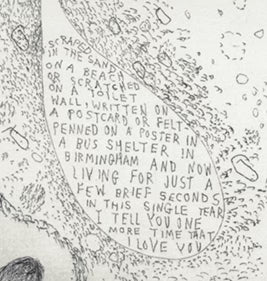 SCRAPED
IN THE SAND
ON A BEACH
OR SCRATCHED
ON A TOILET
WALL, WRITTEN ON
A POSTCARD OR FELT-
PENNED ON A POSTER IN
A BUS SHELTER IN
BIRMINGHAM AND NOW
LIVING FOR JUST A
FEW BRIEF SECONDS
IN THIS SINGLE TEAR
I TELL YOU ONE
MORE TIME THAT
I LOVE YOU